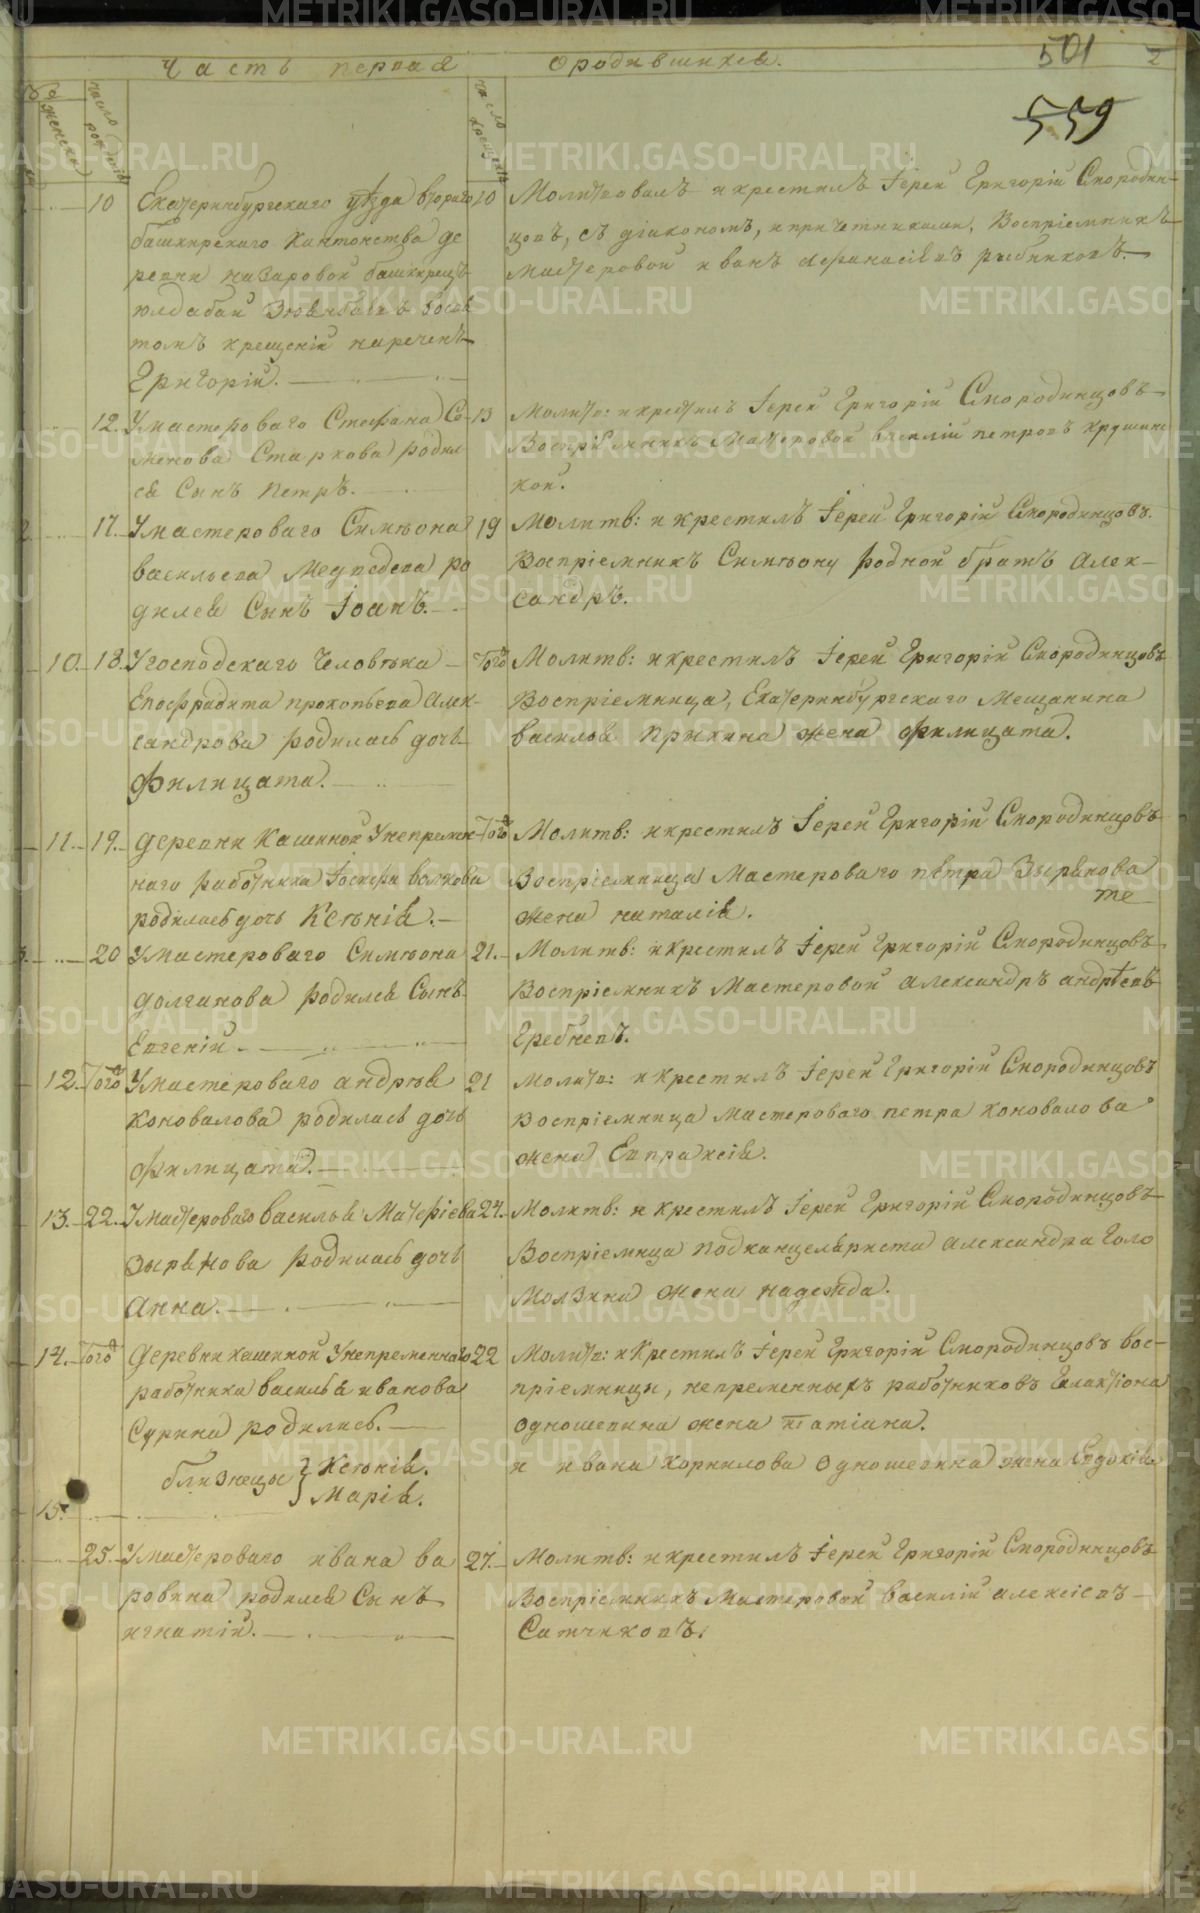 501
2
Часть первая
о родившихся.
559
женска
число рожденія
число крещенія
10
Екатеринбургскаго уѣзда втораго
башкирскаго кантонства де
ревни Назаровой башкирецъ
Юлдабай
томъ крещеніи нареченъ
Григорій.
10
Молитвовалъ и крестилъ Іерей Григорій Смородин-
цовъ, съ діакономъ, и причетниками, Воспріемникъ
Мастеровой иванъ Афанасіевъ рыбниковъ.
12.
У мастероваго Стефана Се-
менова Старкова родил
ся Сынъ Петръ.
13
Молитв: и крестилъ Іерей Григорій Смородинцовъ
Воспріемникъ Мастеровой василій петровъ
ков.
17.
У мастероваго Симеона
васильева Медведева ро
дился Сынъ Іоанъ.
19
Молитв: и крестилъ Іерей Григорій Смородинцовъ.
Воспріемникъ Симеону родной братъ Алек-
сандръ.
10. 18.
У господскаго Человѣка
Епафродита прокопьева Алек-
сандрова родилась дочь
Филицата.
того
Молитв: и крестилъ Іерей Григорій Смородинцовъ
Воспріемница, Екатеринбургскаго Мещанина
василья жена филицата.
11. 19.
деревни Кашиной У непремен-
наго работника Іосифа волкова
родилась дочь Ксенія.
того
Молитв: и крестилъ Іерей Григорій Смородинцовъ
Воспріемница Мастероваго петра Зырянова
те
жена наталія.
20
У мастероваго Симеона
долганова родился Сынъ
Евгеній.
21.
Молитв: и крестилъ Іерей Григорій Смородинцовъ
Воспріемникъ Мастеровой александръ андрѣевъ
Гребневъ.
12. того
У мастероваго андрея
Коновалова родилась дочь
Филицата.
21
Молитв: и крестилъ Іерей Григорій Смородинцовъ
Воспріемница мастероваго петра коновалова
жена Евпраксія.
13. 22.
У мастероваго василья Матфіева
Зырянова родилась дочь
Анна.
24.
Молитв: и крестилъ Іерей Григорій Смородинцовъ
Воспріемница подканцеляриста александра Голо
Молзина жена надежда.
14. того
Деревни кашиной У непременнаго
работника василья иванова
Сурина родились.
близнецы { Ксенія.
Марія.
15.
22
Молитв: и Крестилъ Іерей Григорій Смородинцовъ вос-
пріемницы, непременныхъ работниковъ Галактіона
Одношевина жена татіана.
и ивана корнилова Одношевина жена Евдокія
25.
У мастероваго ивана ва
ровина родился Сынъ
игнатій.
27.
Молитв: и крестилъ Іерей Григорій Смородинцовъ
Воспріемникъ Мастеровой василій алексіевъ
Ситчиковъ.
METRIKI.GASO-URAL.RU